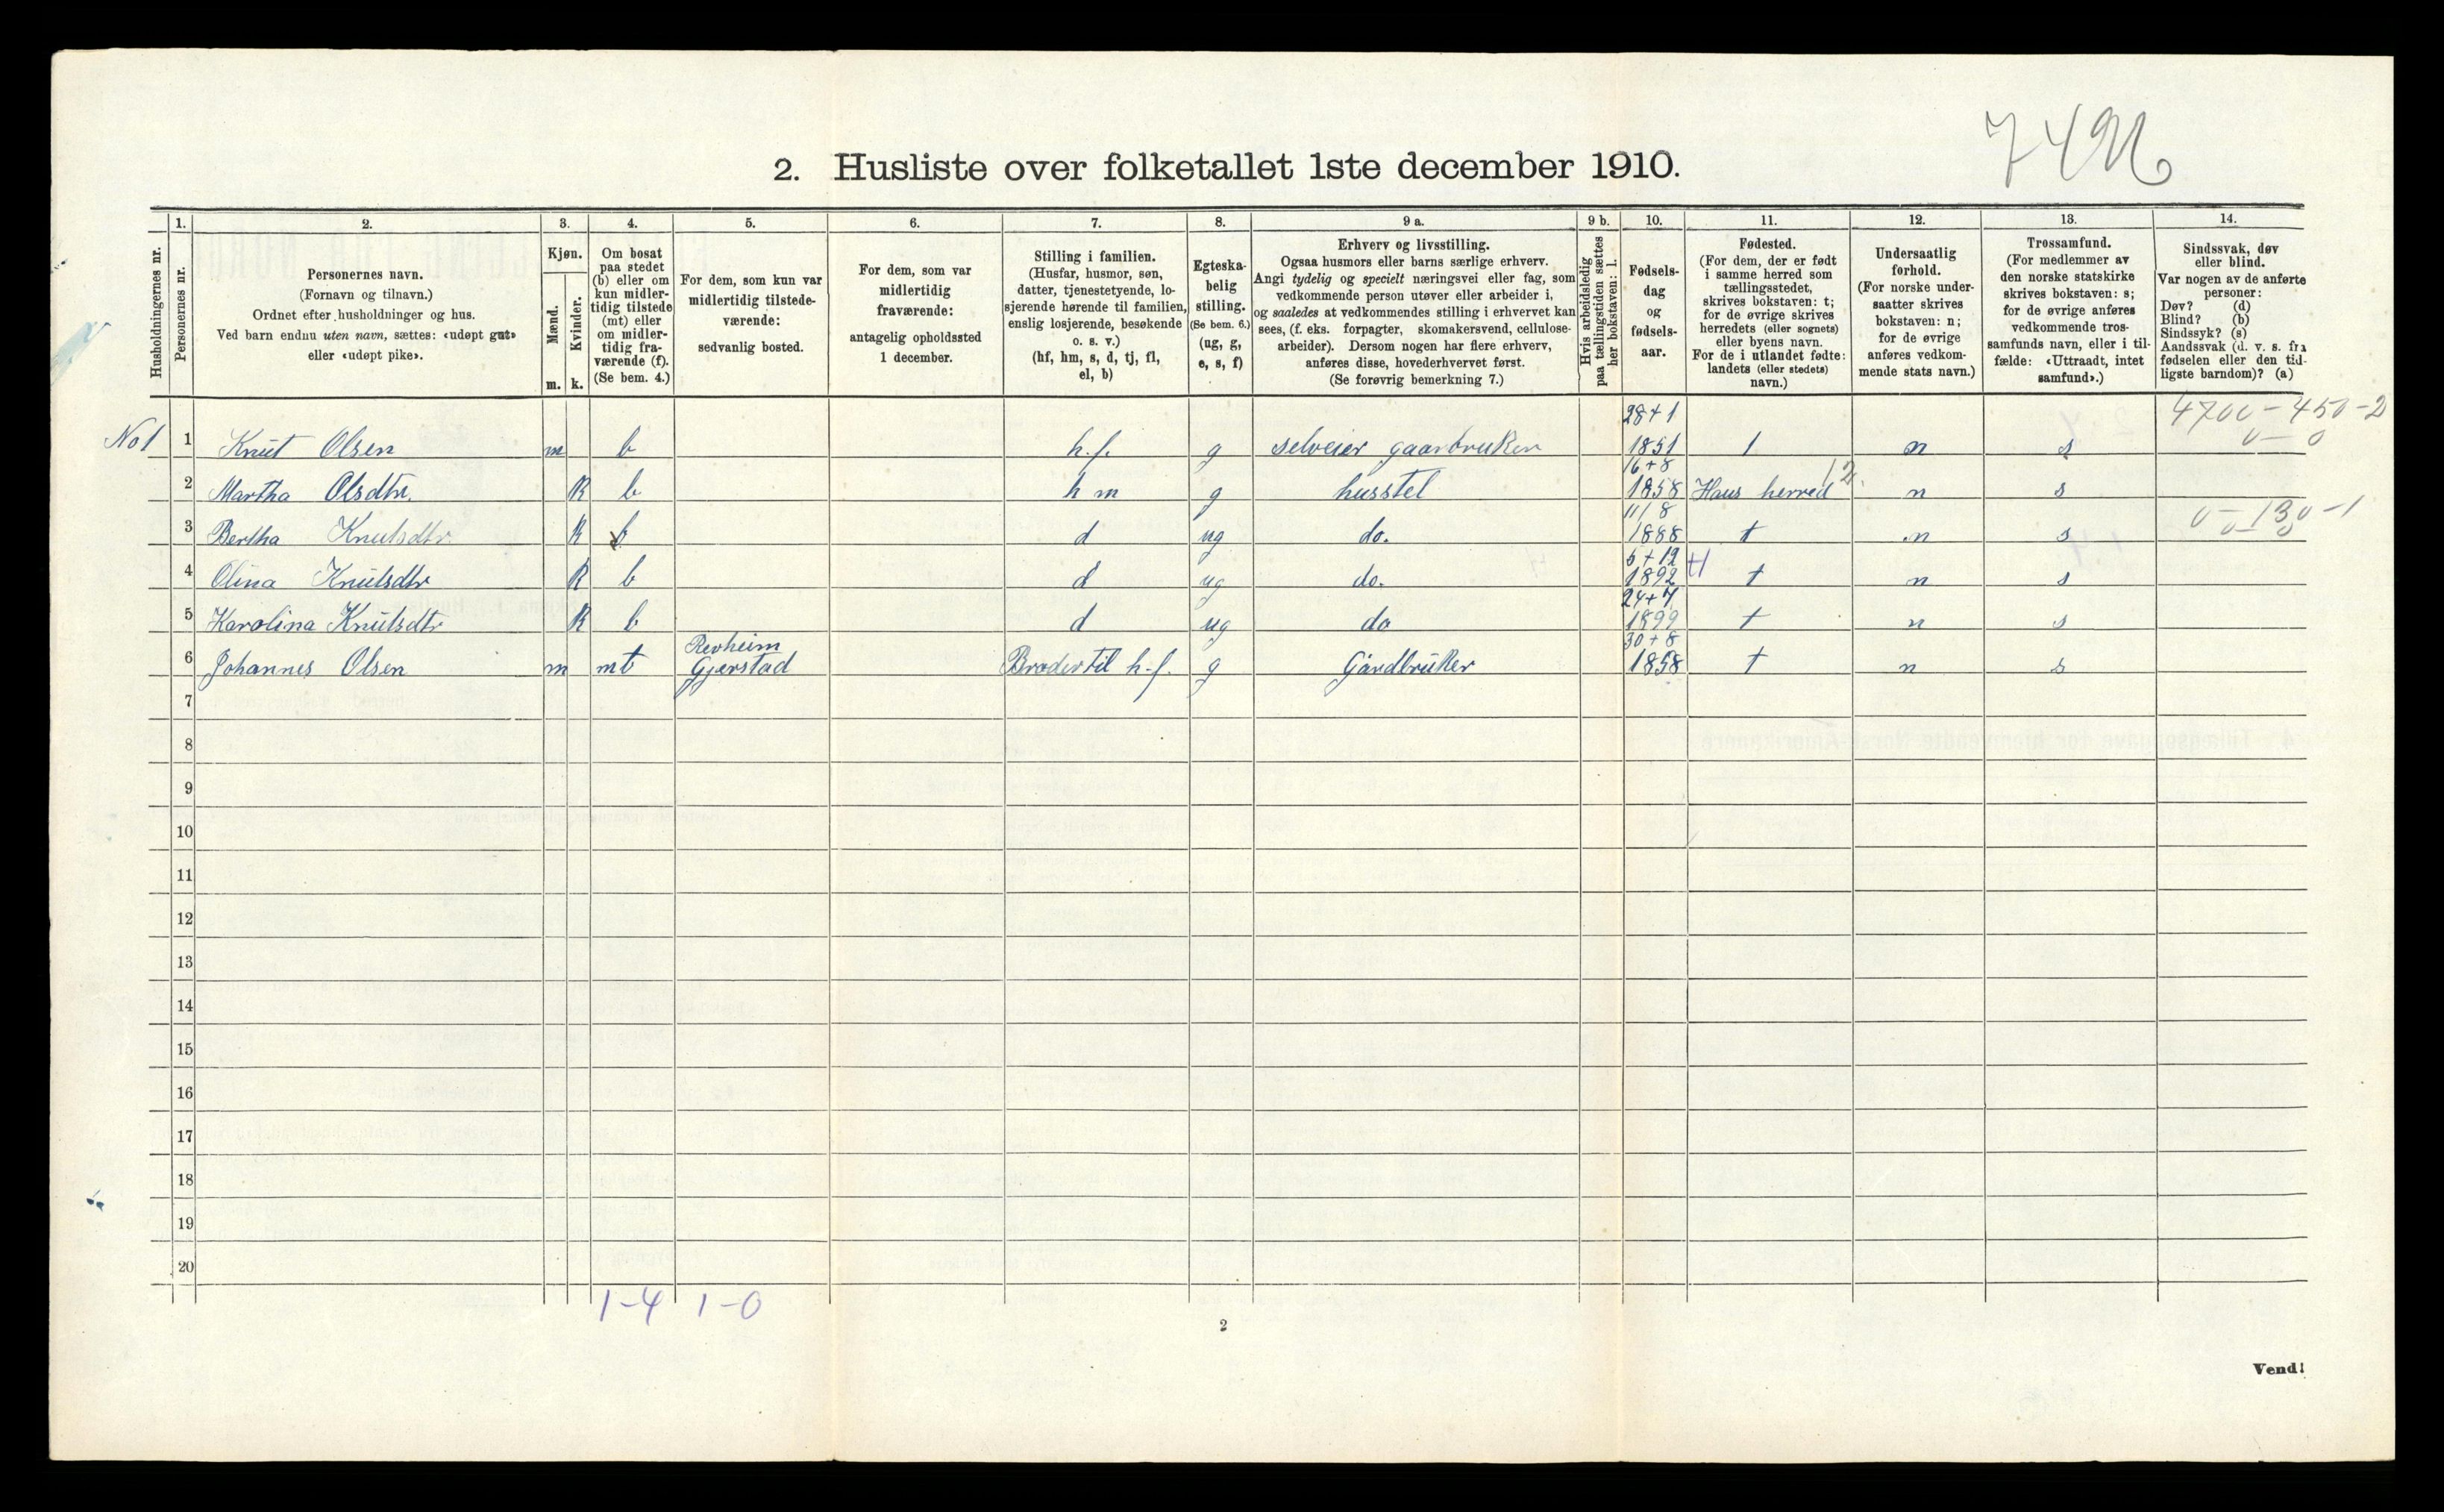 7426
2. Husliste over folketallet 1ste december 1910.
Husholdningernes nr.
1.
Personernes nr.
2.
Personernes navn.
(Fornavn og tilnavn.)
Ordnet efter husholdninger og hus.
Ved barn endnu uten navn, sættes: «udøpt gut»
eller «udøpt pike».
3.
Kjøn.
Mænd.
Kvinder.
m. k.
4.
Om bosat
paa stedet
(b) eller om
kun midler-
tidig tilstede
(mt) eller
om midler-
tidig fra-
værende (f).
(Se bem. 4.)
5.
For dem, som kun var
midlertidig tilstede-
værende:
sedvanlig bosted.
6.
For dem, som var
midlertidig
fraværende:
antagelig opholdssted
1 december.
7.
Stilling i familien.
(Husfar, husmor, søn,
datter, tjenestetyende, lo-
sjerende hørende til familien,
enslig losjerende, besøkende
o. s. v.)
(hf, hm, s, d, tj, fl,
el, b)
8.
Egteska-
belig
stilling.
(Se bem. 6.)
(ug, g,
e, s, f)
9 a.
Erhverv og livsstilling.
Ogsaa husmors eller barns særlige erhverv.
Angi tydelig og specielt næringsvei eller fag, som
vedkommende person utøver eller arbeider i,
og saaledes at vedkommendes stilling i erhvervet kan
sees, (f. eks. forpagter, skomakersvend, cellulose-
arbeider). Dersom nogen har flere erhverv,
anføres disse, hovederhvervet først.
(Se forøvrig bemerkning 7.)
9 b.
Hvis arbeidsledig
paa tællingstiden sættes
her bokstaven: l.
10.
Fødsels-
dag
og
fødsels-
aar.
11.
Fødested.
(For dem, der er født
i samme herred som
tællingsstedet,
skrives bokstaven: t;
for de øvrige skrives
herredets (eller sognets)
eller byens navn.
For de i utlandet fødte:
landets (eller stedets)
navn.)
12.
Undersaatlig
forhold.
(For norske under-
saatter skrives
bokstaven: n;
for de øvrige
anføres vedkom-
mende stats navn.)
13.
Trossamfund.
(For medlemmer av
den norske statskirke
skrives bokstaven: s;
for de øvrige anføres
vedkommende tros-
samfunds navn, eller i til-
fælde: «Uttraadt, intet
samfund».)
14.
Sindssvak, døv
eller blind.
Var nogen av de anførte
personer:
Døv? (d)
Blind? (b)
Sindssyk? (s)
Aandssvak (d. v. s. fra
fødselen eller den tid-
ligste barndom)? (a)
4700-450-2
0-0
No 1 1 Knut Olsen m b h.f. g selveier gaarbruker 28+1 1851 t n s
2 Martha Olsdtr. k b h m g husstel 16+8 1858 Haus herred 12. n s
0-130-1
0-0
3 Bertha Knutsdtr. k b d ug do. 11/8 1888 t n s
4 Olina Knutsdtr k b d ug do. 5+12 1892 t n s
5 Karolina Knutsdtr k b d ug do 24+7 1899 t n s
6 Johannes Olsen m mt Revheim Gjerstad Broder til h.f. g Gårdbruker 30+8 1858 t n s
7
8
9
10
11
12
13
14
15
16
17
18
19
20
1-4 1-0
2
Vend!